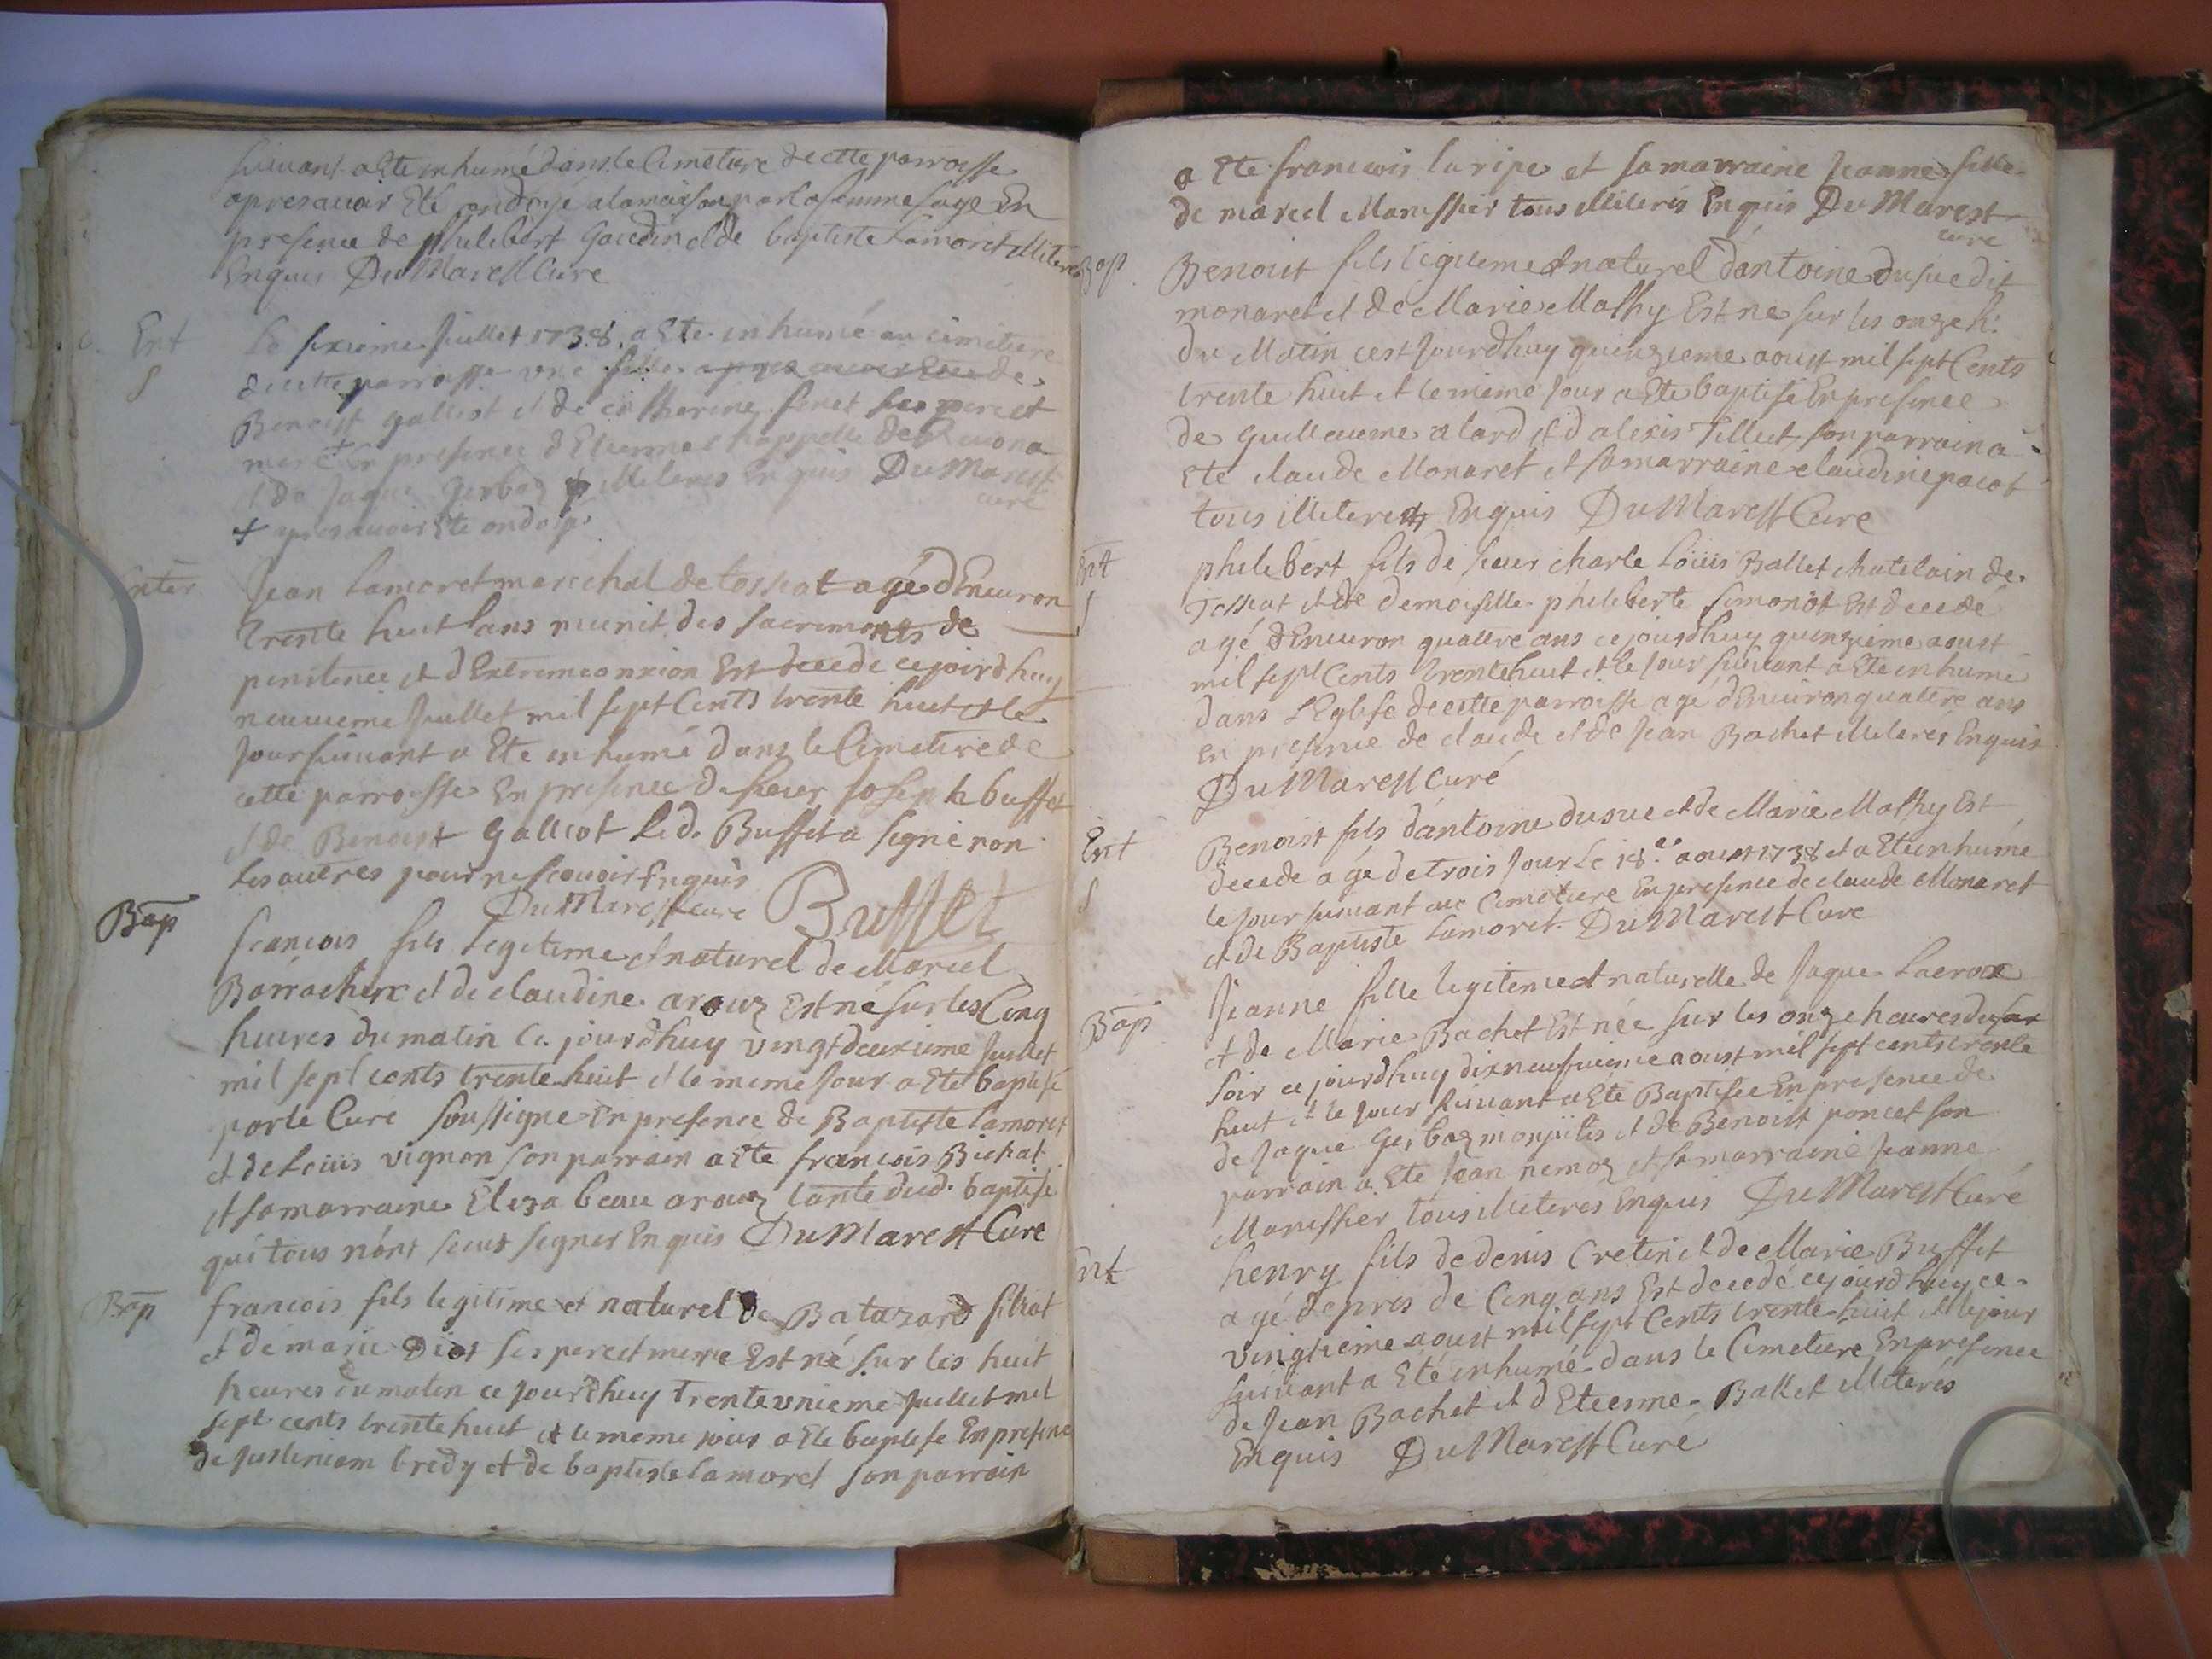 suivant a Ete inhumé dans le Cimetiere de cette parroisse
apres avoir Eté ondoyé a la maison par la femme sage En
presence de philibert Gaudin et de baptiste Lamoret illiteres
Enquis DuMarest Cure
Ent Le sixieme Juillet 1738. a Ete inhumé au cimetiere
S de cette parroisse une fille apres avoir Ete de
Benoist galliot et de catherine feret ses pere et
mere + En presence d'Etienne chappelle de
et de Jaque Gerbaz illiteres Enquis DuMarest
curé
+ apres avoir Ete ondoyé
Enter Jean Lamoret marechal de tossiat agé d'Environ
trente huit ans munit des sacrements de
penitence et d'Extremeonxion Est decedé cejourdhuy
neuvieme Juillet mil sept Cents trente huit et le
Jour suivant a Ete inhumé dans le Cimetiere de
cette parroisse En presence de sieur Joseph buffet
et de Benoist Galliot Led. Buffet a signé non
les autres pour ne scavoir Enquis
DuMarest cure Buffet
Bap francois fils Legitime et naturel de Marcel
Barrachin et de claudine arouz Est né sur les Cinq
heures du matin Ce jourdhuy vingtdeuxieme Juillet
mil sept cents trente huit et le meme Jour a Ete baptisé
par le Curé soussigné En presence de Baptiste Lamoret
et de Loüis vignon son parrain a Ete francois Bichat
et sa marraine Elizabeau arouz tante dud. baptisé
qui tous n'ont sceus signer Enquis DuMarest Cure
Bap francois fils legitime et naturel de Batazard filliot
et de marie Diot ses pere et mere Est né sur les huit
heures du matin ce jourdhuy trente unieme Juillet mil
sept cents trente huit et le meme jour a Ete baptisé En presence
de bredy et de baptiste Lamoret son parrain
a Ete francois laripe et sa marraine Jeanne fille
de marcel Manissier tous illiterés Enquis DuMarest
cure
Bap Benoist fils legitime et naturel d'antoine dusue dit
monaret et de Marie Mathy Est né sur les onze h.
du Matin cest Jourdhuy quinzieme aoust mil sept Cents
trente huit et le meme Jour a Ete baptisé En presence
de Guillaume alard et d'alexis Tillet son parrain a
Ete claude Monaret et sa marraine claudine pacot
tous illiterés Enquis DuMarest Cure
Ent philibert fils de sieur charle Loüis Ballet chatelain de
S Tossiat et de demoiselle philiberte simonot Est decedé
agé d'Environ quattre ans ce jourdhuy quinzieme aoust
mil sept Cents trente huit et le Jour suivant a Ete inhumé
dans L'Eglise de cette parroisse agé d'Environ quattre ans
en presence de claude et de Jean Bachet illiterés Enquis
DuMarest Curé
Ent Benoist fils d'antoine dusue et de Marie Mathy Est
decedé agé de trois Jour Le 18.e aoust 1738 et a Ete inhumé
S le Jour suivant au Cimetiere En presence de claude Monaret
et de Baptiste Lamoret. DuMarest Cure
Bap Jeanne fille legitime et naturelle de Jaque Lacroix
et de Marie Bachet Est née sur les onze heures du
soir ce jourdhuy dixneufvieme aoust mil sept cents trente
huit et le Jour suivant a Eté Baptisée En presence de
de Jaque Gerbaz et de Benoist poncet son
parrain a Ete Jean nemoz et sa marraine Jeanne
Manissier tous illiteres Enquis DuMarest Curé
Ent henry fils de denis Cretin et de Marie Buffet
agé d'apres de Cinq ans Est decedé cejourdhuy ce
vingtieme aoust mil sept Cents trente huit et le jour
suivant a Eté inhumé dans le Cimetiere En presence
de Jean Bachet et d'Etienne Ballet illiterés
Enquis DuMarest Curé